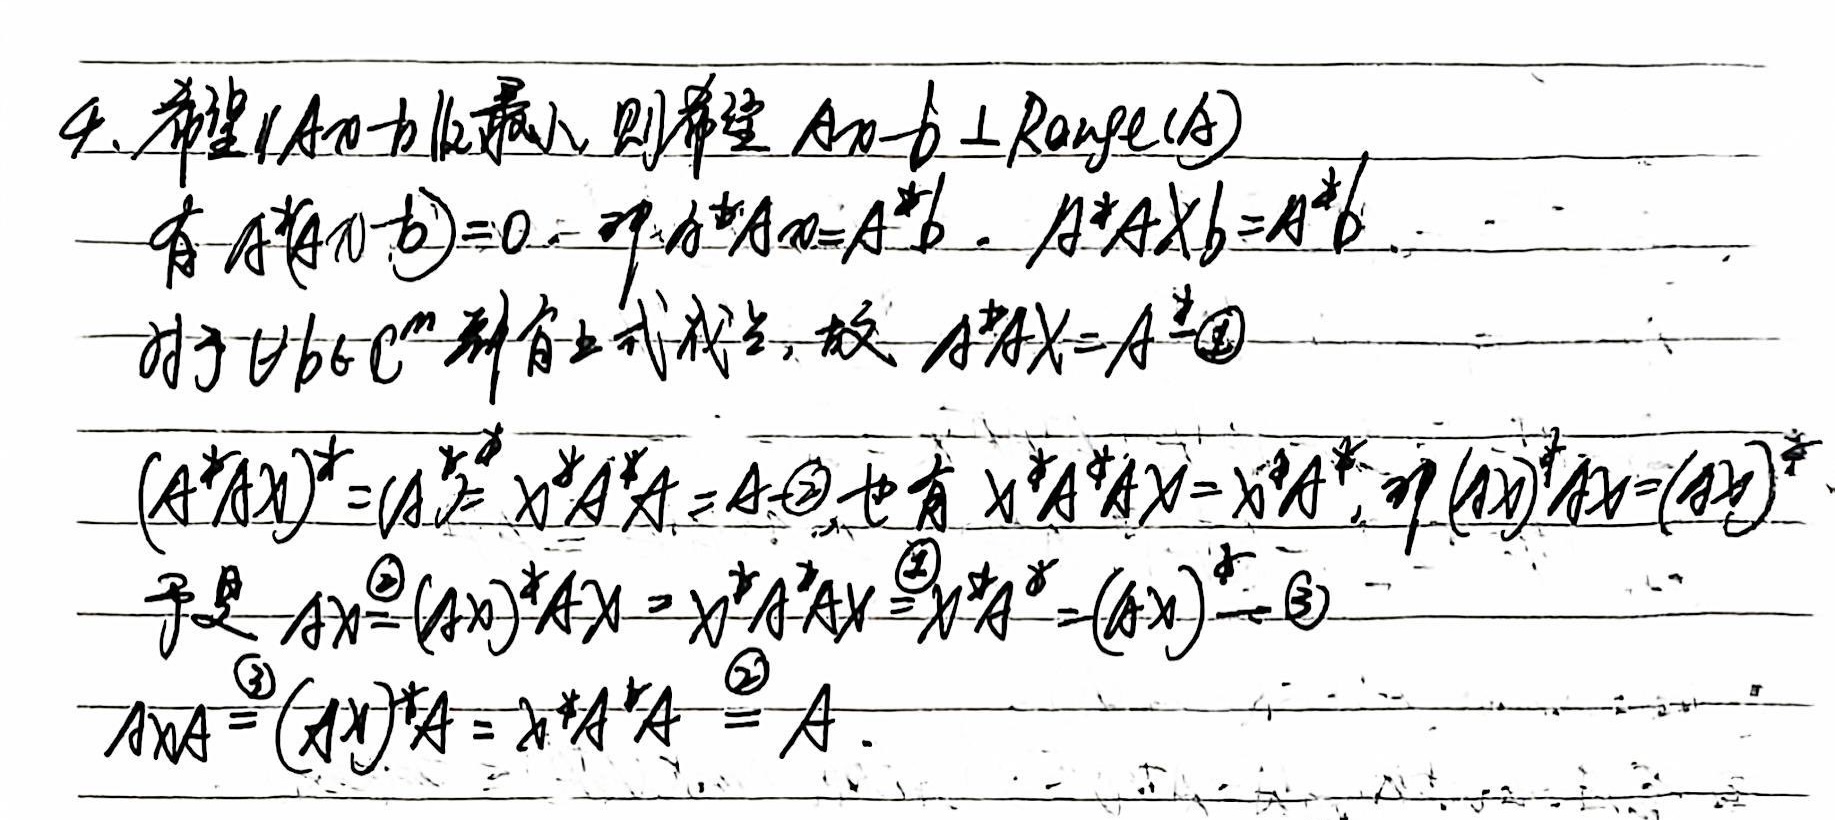 4. 希望‖Ax-b‖₂最小, 则希望 Ax-b ⊥ Range(A)
有 A*(Ax-b)=0. 即 A*Ax=A*b. A*AXb=A*b.
对于∀b∈C^m 都有上式成立, 故 A*AX=A* —①
(A*AX)*=(A*)*= X*A*A=A—②, 也有 X*A*AX=X*A*, 即 (AX)*AX=(AX)*.
于是 AX ②= (AX)*AX = X*A*AX ①= X*A* =(AX)* —③
AXA ③= (AX)*A = X*A*A ②= A.